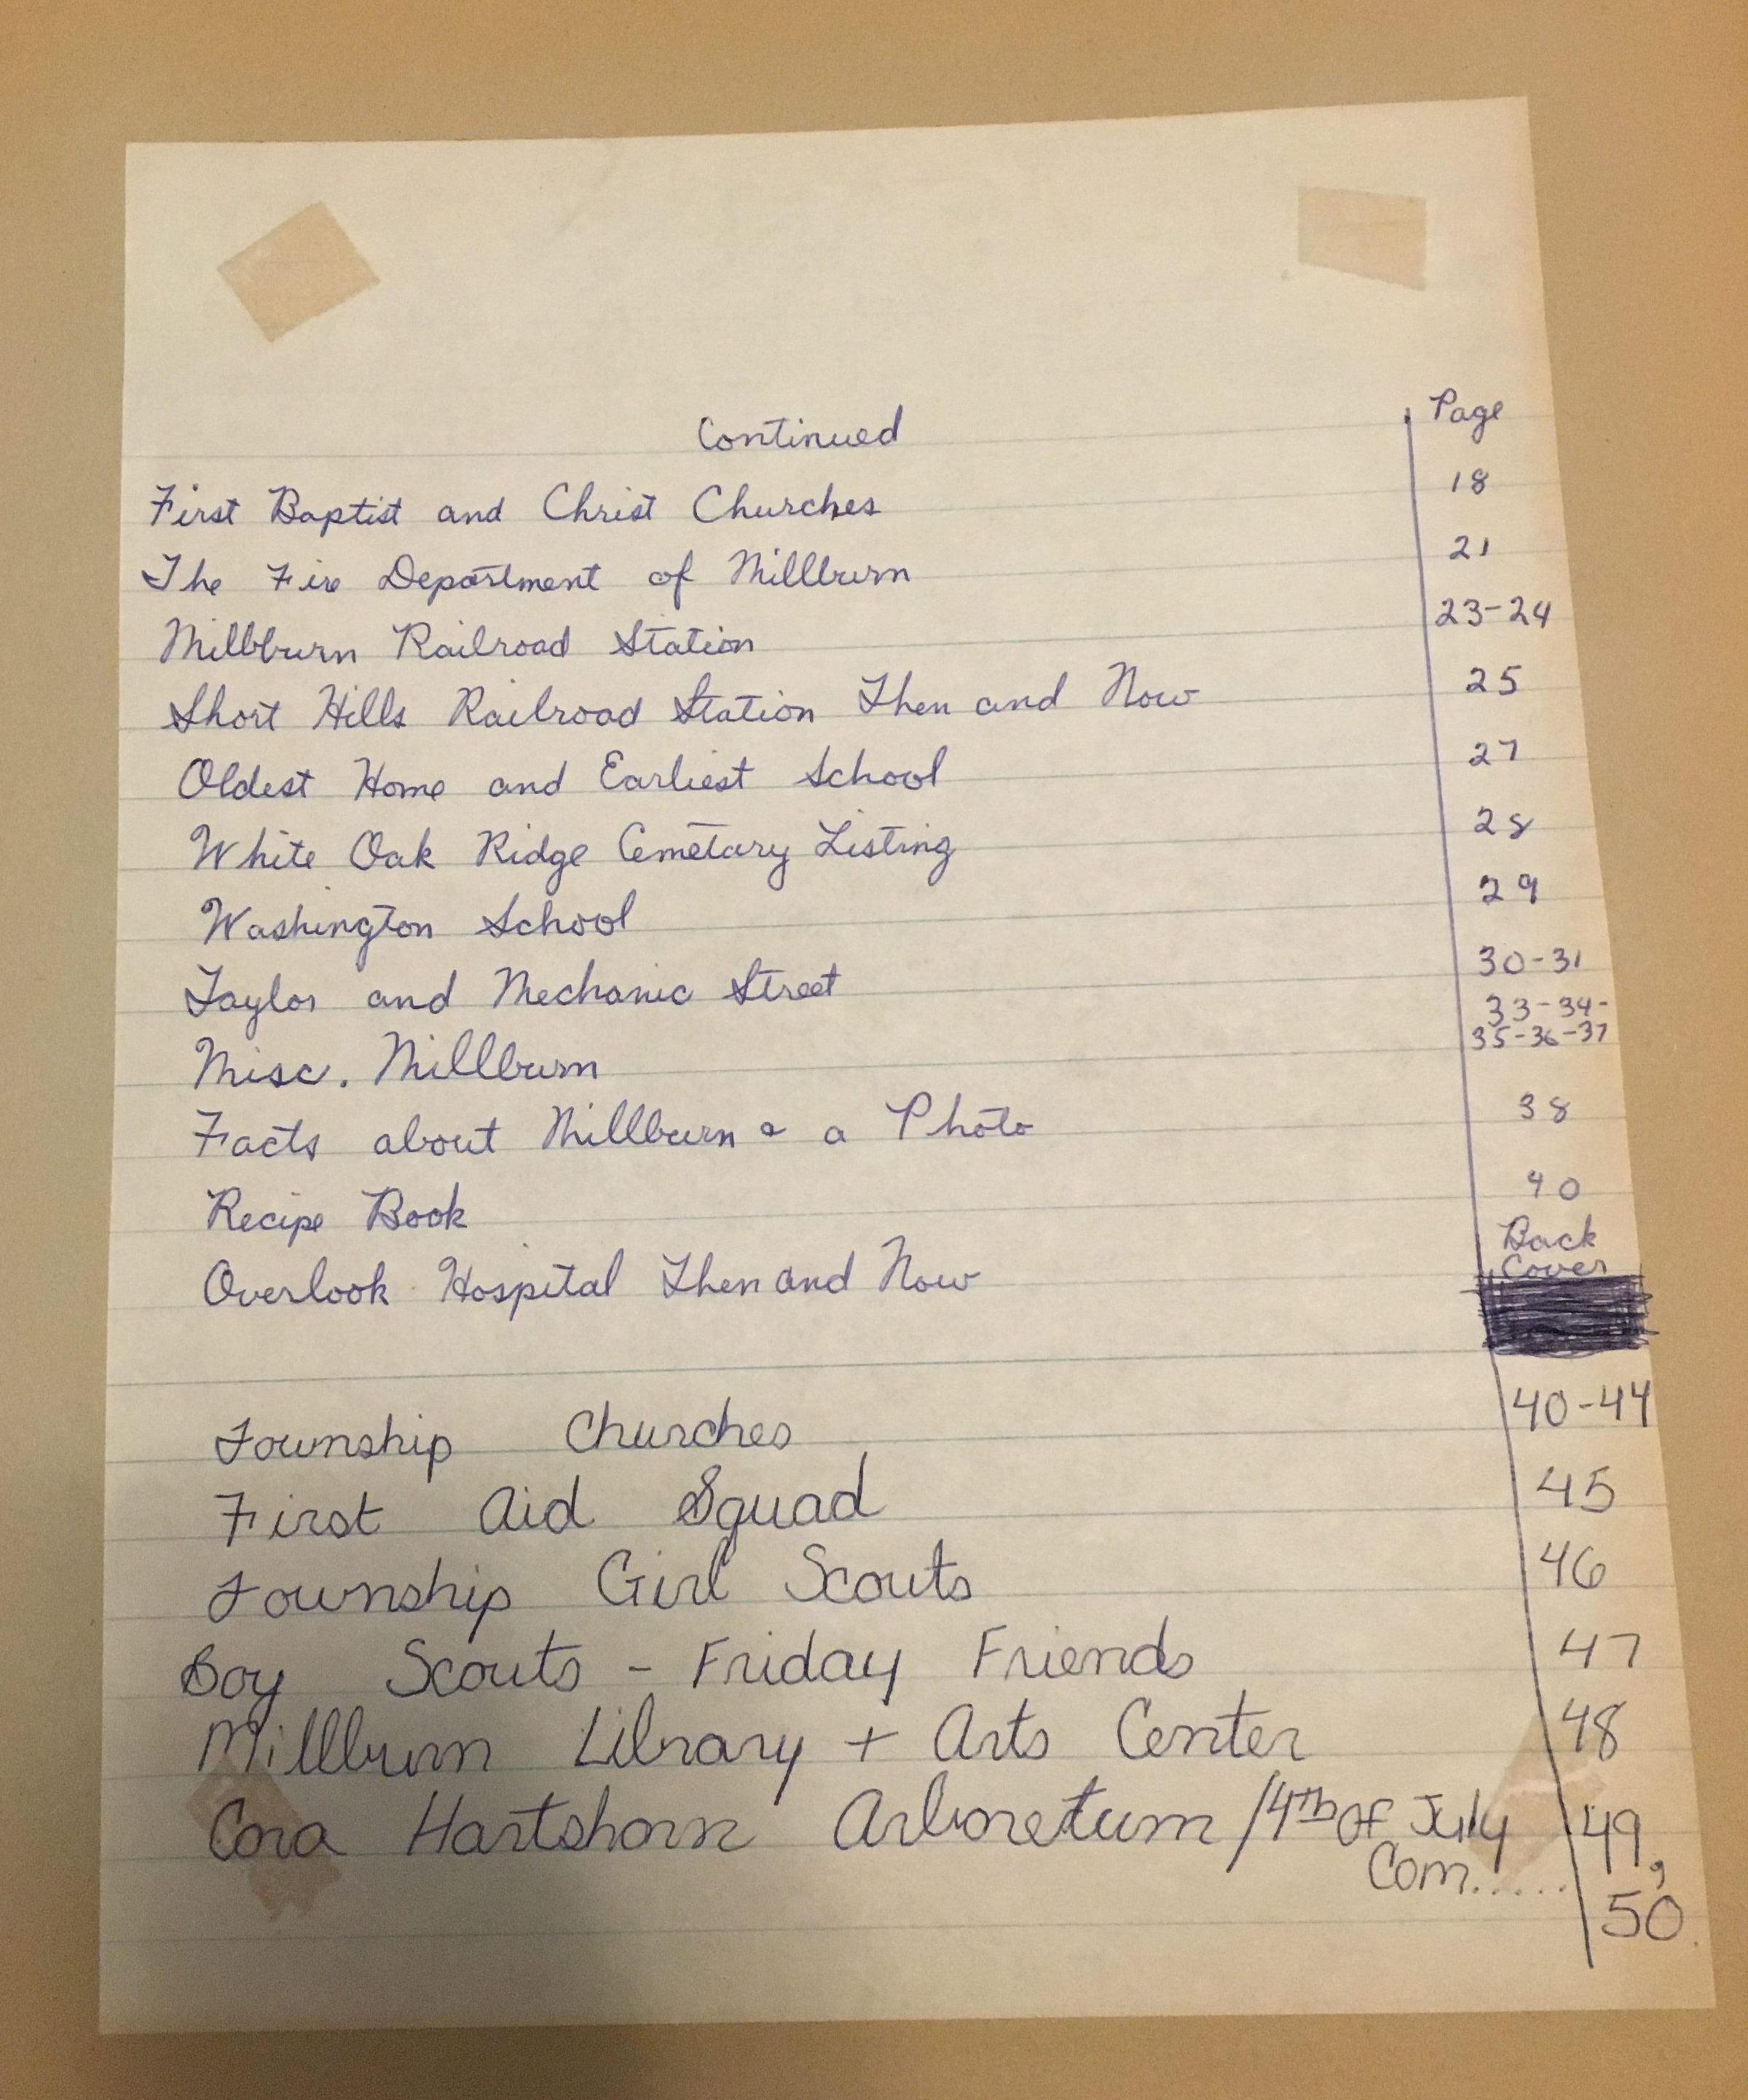 Continued Page
First Baptist and Christ Churches 18
The Fire Department of Millburn 21
Millburn Railroad Station 23-24
Short Hills Railroad Station Then and Now 25
Oldest Home and Earliest School 27
White Oak Ridge Cemetary Listing 28
Washington School 29
Taylor and Mechanic Street 30-31
33-34-
Misc. Millburn 35-36-37
Facts about Millburn & a Photo 38
Recipe Book 40
Back
Overlook Hospital Then and Now Cover
Township Churches 40-44
First Aid Squad 45
Township Girl Scouts 46
Boy Scouts - Friday Friends 47
Millburn Library + Arts Center 48
Cora Hartshorn Arboretum /4th of July 49,
Com..... 50